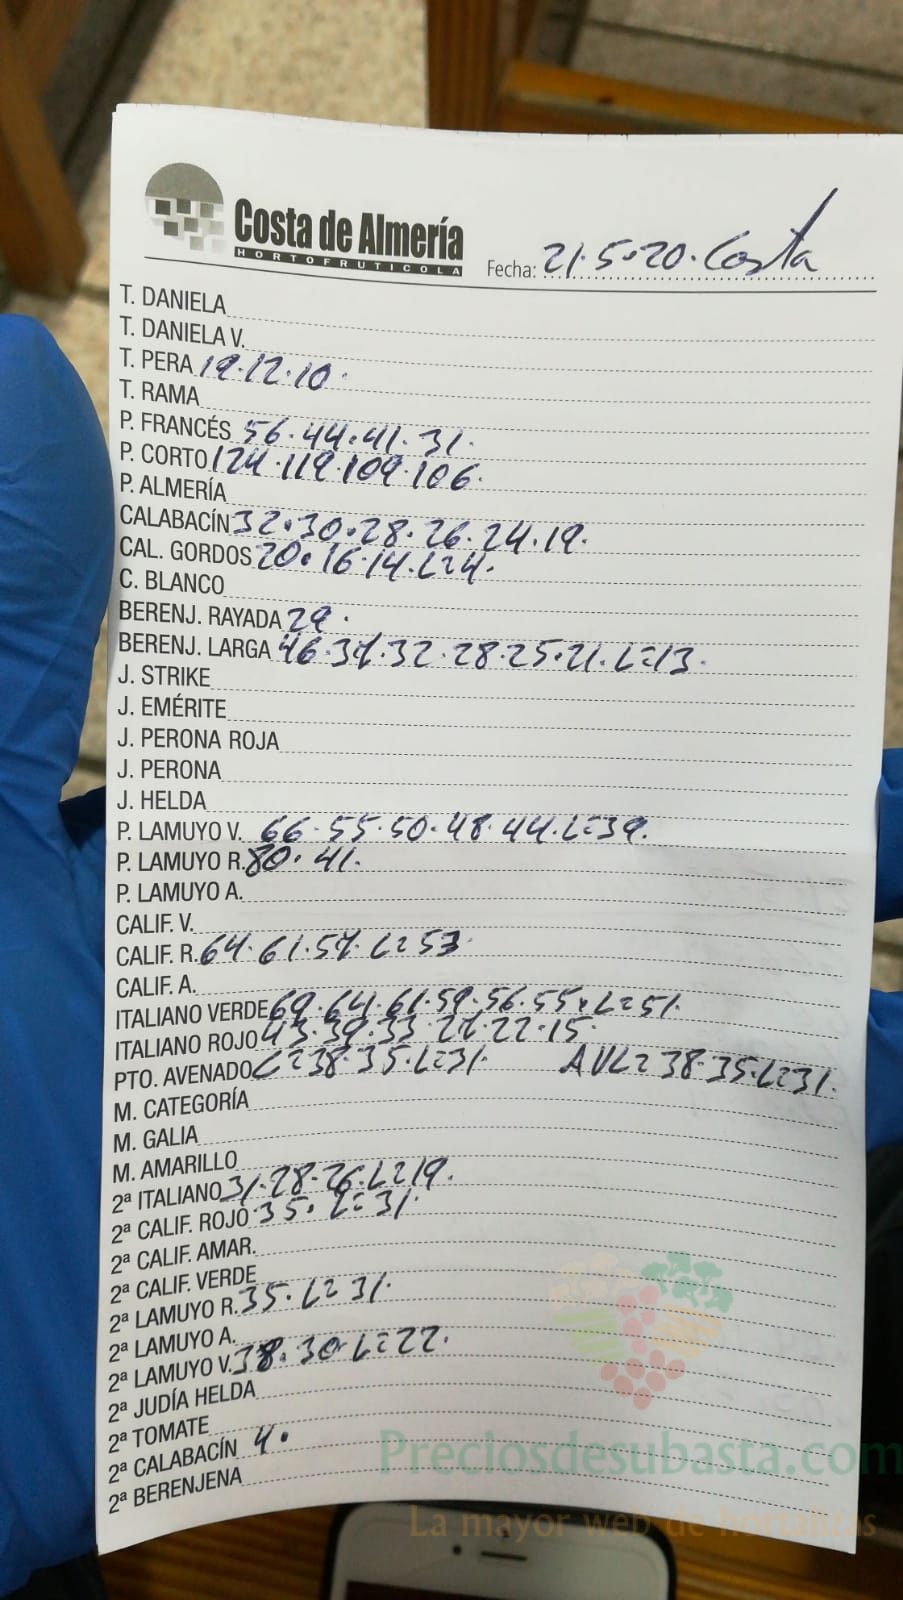 Costa de Almería
HORTOFRUTICOLA
Fecha: 21.5.20. Costa
T. DANIELA
T. DANIELA V.
T. PERA 19.12.10.
T. RAMA
P. FRANCÉS 56.44.41.31.
P. CORTO 124.119.109.106.
P. ALMERÍA
CALABACÍN 32.30.28.26.24.19.
CAL. GORDOS 20.16.14.L=4.
C. BLANCO
BERENJ. RAYADA 29.
BERENJ. LARGA 46.37.32.28.25.21.L=13.
J. STRIKE
J. EMÉRITE
J. PERONA ROJA
J. PERONA
J. HELDA
P. LAMUYO V. 66.55.50.48.44.L=39.
P. LAMUYO R. 80.41.
P. LAMUYO A.
CALIF. V.
CALIF. R. 64.61.57.L=53.
CALIF. A.
ITALIANO VERDE 69.64.61.59.56.55.L=51.
ITALIANO ROJO 43.39.33.27.22.15.
PTO. AVENADO L=38.35.L=31. AVL=38.35.L=31.
M. CATEGORÍA
M. GALIA
M. AMARILLO
2ª ITALIANO 31.28.26.L=19.
2ª CALIF. ROJO 35.L=31.
2ª CALIF. AMAR.
2ª CALIF. VERDE
2ª LAMUYO R. 35.L=31.
2ª LAMUYO A.
2ª LAMUYO V. 38.30.L=22.
2ª JUDÍA HELDA
2ª TOMATE
2ª CALABACÍN 4.
2ª BERENJENA
Preciosdesubasta.com
La mayor web de hortalizas